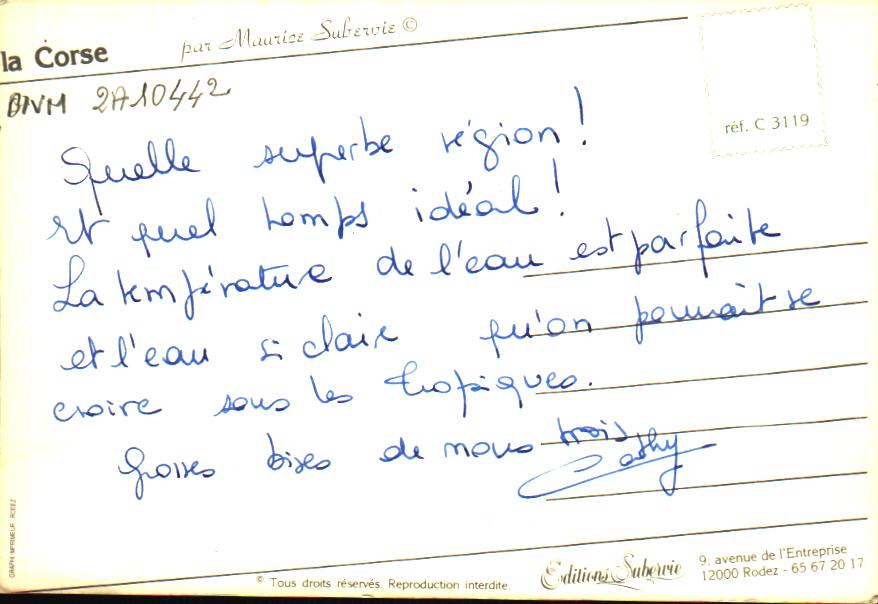 la Corse
par Maurice Subervie ©
2A10442
réf. C 3119
Quelle superbe région !
Et quel temps idéal !
La température de l'eau est parfaite
et l'eau si claire qu'on pourrait se
croire sous les tropiques.
Grosses bises de nous trois
Cathy
© Tous droits réservés. Reproduction interdite
Editions Subervie
9, avenue de l'Entreprise
12000 Rodez - 65 67 20 17